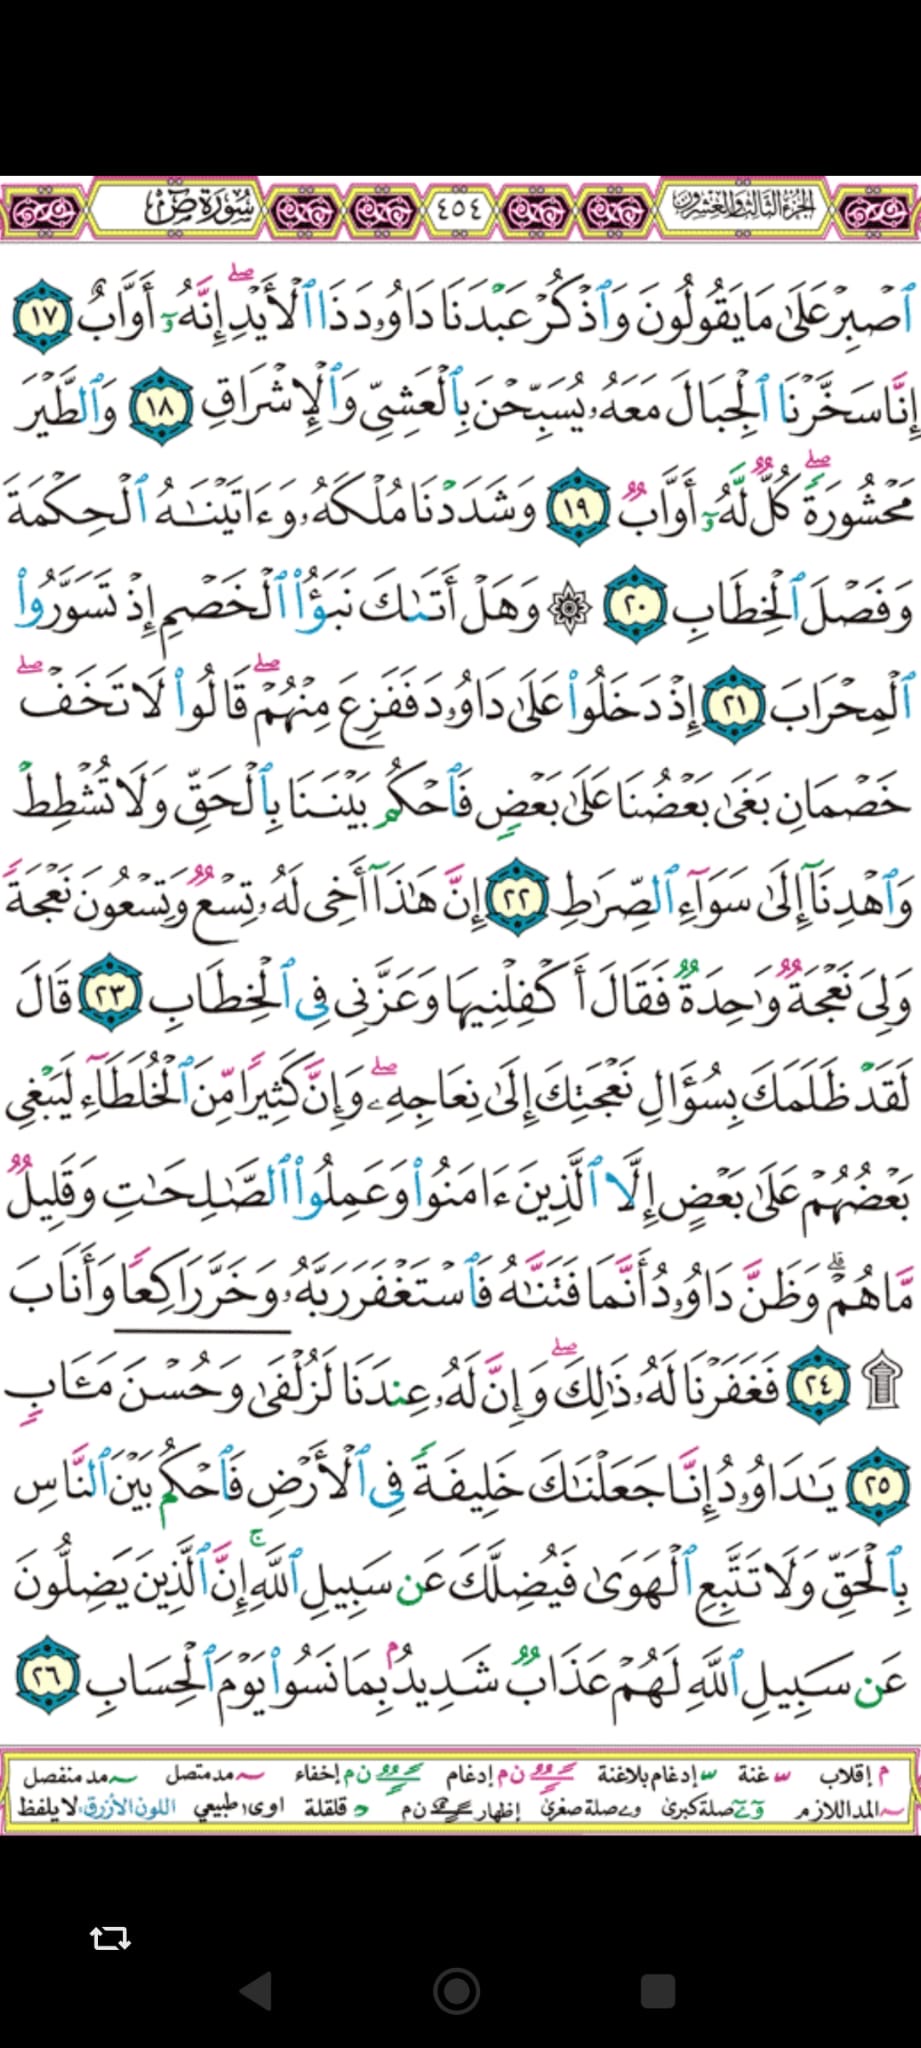 الجزء الثالث والعشرون ٤٥٤ سُورَةُ صٓ
ٱصْبِرْ عَلَىٰ مَا يَقُولُونَ وَٱذْكُرْ عَبْدَنَا دَاوُۥدَ ذَا ٱلْأَيْدِۖ إِنَّهُۥٓ أَوَّابٌ ١٧
إِنَّا سَخَّرْنَا ٱلْجِبَالَ مَعَهُۥ يُسَبِّحْنَ بِٱلْعَشِىِّ وَٱلْإِشْرَاقِ ١٨ وَٱلطَّيْرَ
مَحْشُورَةًۖ كُلٌّ لَّهُۥٓ أَوَّابٌ ١٩ وَشَدَدْنَا مُلْكَهُۥ وَءَاتَيْنَٰهُ ٱلْحِكْمَةَ
وَفَصْلَ ٱلْخِطَابِ ٢٠ ۞ وَهَلْ أَتَىٰكَ نَبَؤُا۟ ٱلْخَصْمِ إِذْ تَسَوَّرُوا۟
ٱلْمِحْرَابَ ٢١ إِذْ دَخَلُوا۟ عَلَىٰ دَاوُۥدَ فَفَزِعَ مِنْهُمْۖ قَالُوا۟ لَا تَخَفْۖ
خَصْمَانِ بَغَىٰ بَعْضُنَا عَلَىٰ بَعْضٍ فَٱحْكُم بَيْنَنَا بِٱلْحَقِّ وَلَا تُشْطِطْ
وَٱهْدِنَآ إِلَىٰ سَوَآءِ ٱلصِّرَٰطِ ٢٢ إِنَّ هَٰذَآ أَخِى لَهُۥ تِسْعٌ وَتِسْعُونَ نَعْجَةً
وَلِىَ نَعْجَةٌ وَٰحِدَةٌ فَقَالَ أَكْفِلْنِيهَا وَعَزَّنِى فِى ٱلْخِطَابِ ٢٣ قَالَ
لَقَدْ ظَلَمَكَ بِسُؤَالِ نَعْجَتِكَ إِلَىٰ نِعَاجِهِۦۖ وَإِنَّ كَثِيرًا مِّنَ ٱلْخُلَطَآءِ لَيَبْغِى
بَعْضُهُمْ عَلَىٰ بَعْضٍ إِلَّا ٱلَّذِينَ ءَامَنُوا۟ وَعَمِلُوا۟ ٱلصَّٰلِحَٰتِ وَقَلِيلٌ
مَّا هُمْۗ وَظَنَّ دَاوُۥدُ أَنَّمَا فَتَنَّٰهُ فَٱسْتَغْفَرَ رَبَّهُۥ وَخَرَّ رَاكِعًا وَأَنَابَ
۩ ٢٤ فَغَفَرْنَا لَهُۥ ذَٰلِكَۖ وَإِنَّ لَهُۥ عِندَنَا لَزُلْفَىٰ وَحُسْنَ مَـَٔابٍ
٢٥ يَٰدَاوُۥدُ إِنَّا جَعَلْنَٰكَ خَلِيفَةً فِى ٱلْأَرْضِ فَٱحْكُم بَيْنَ ٱلنَّاسِ
بِٱلْحَقِّ وَلَا تَتَّبِعِ ٱلْهَوَىٰ فَيُضِلَّكَ عَن سَبِيلِ ٱللَّهِۚ إِنَّ ٱلَّذِينَ يَضِلُّونَ
عَن سَبِيلِ ٱللَّهِ لَهُمْ عَذَابٌ شَدِيدٌۢ بِمَا نَسُوا۟ يَوْمَ ٱلْحِسَابِ ٢٦
م إقلاب غنة إدغام بلاغنة ن م إدغام ن م إخفاء مد متصل مد منفصل
المد اللازم صلة كبرى صلة صغرى إظهار ن م قلقلة اوى طبيعي اللون الأزرق: لا يلفظ